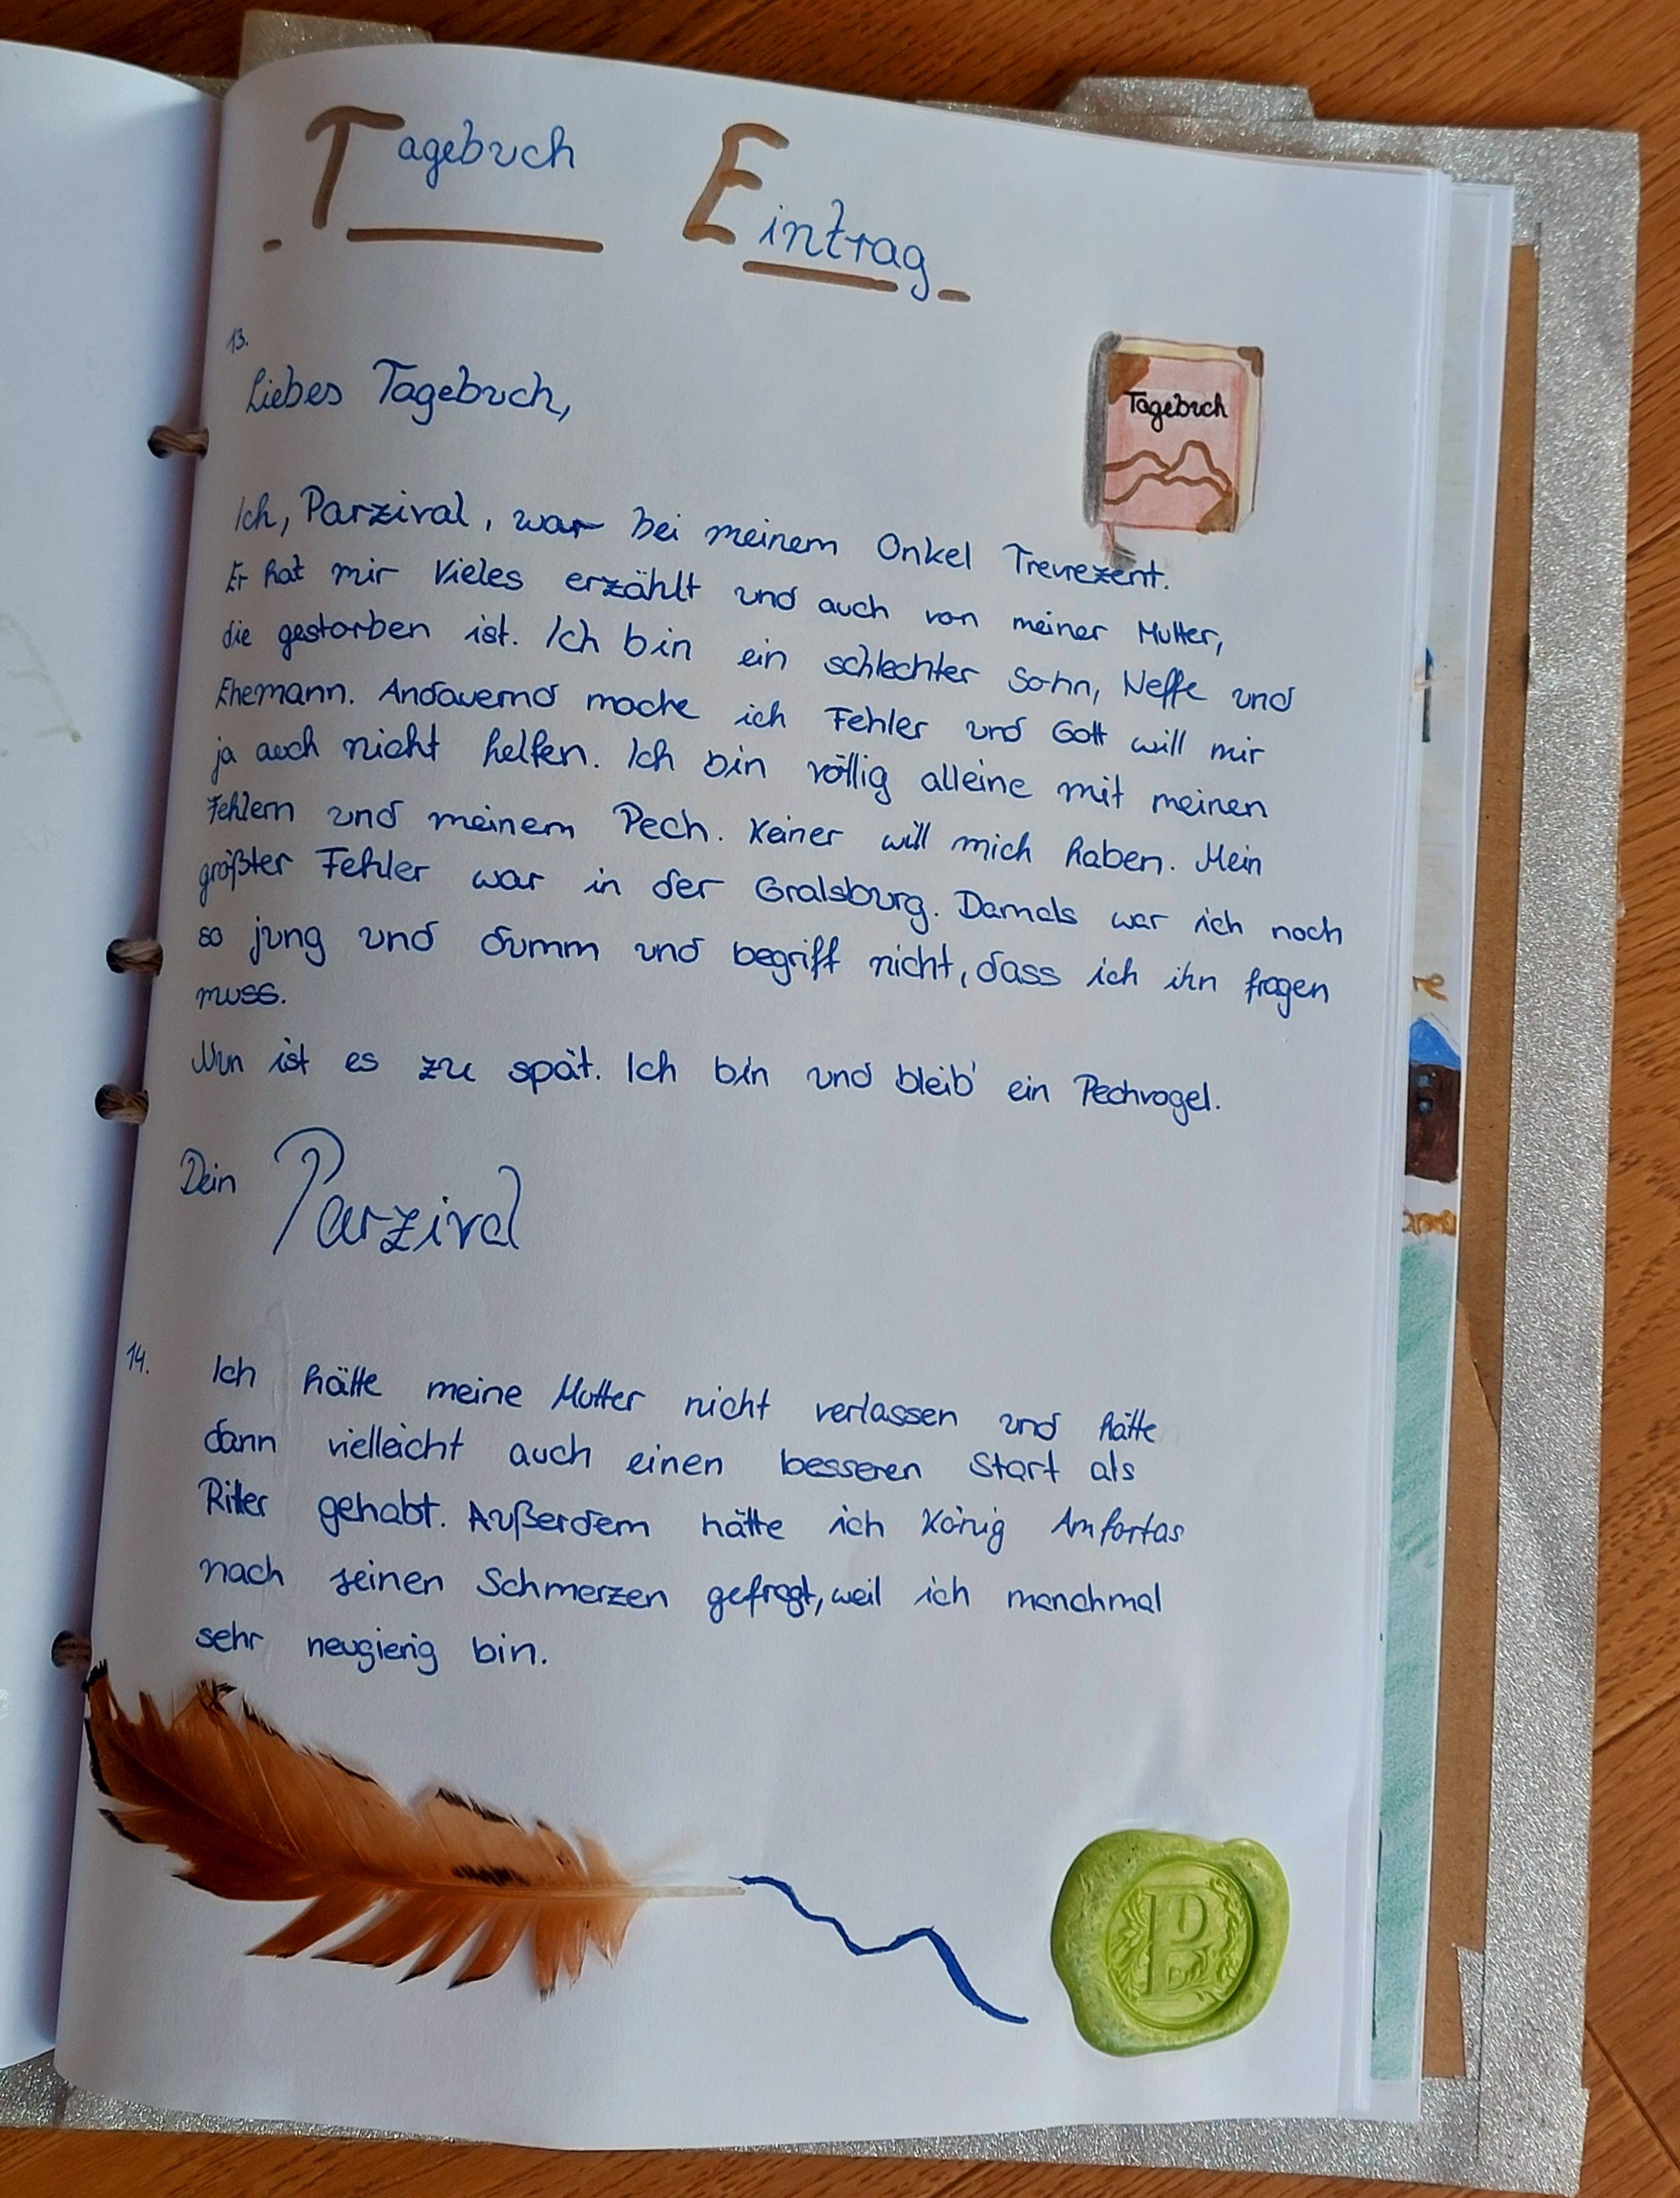 Tagebuch Eintrag
13.
Liebes Tagebuch,
Tagebuch
Ich, Parzival, war bei meinem Onkel Trevrezent.
Er hat mir Vieles erzählt und auch von meiner Mutter,
die gestorben ist. Ich bin ein schlechter Sohn, Neffe und
Ehemann. Andauernd mache ich Fehler und Gott will mir
ja auch nicht helfen. Ich bin völlig alleine mit meinen
Fehlern und meinem Pech. Keiner will mich haben. Mein
größter Fehler war in der Gralsburg. Damals war ich noch
so jung und dumm und begriff nicht, dass ich ihn fragen
muss.
Nun ist es zu spät. Ich bin und bleib' ein Pechvogel.
Dein Parzival
14. Ich hätte meine Mutter nicht verlassen und hätte
dann vielleicht auch einen besseren Start als
Ritter gehabt. Außerdem hätte ich König Amfortas
nach seinen Schmerzen gefragt, weil ich manchmal
sehr neugierig bin.
P